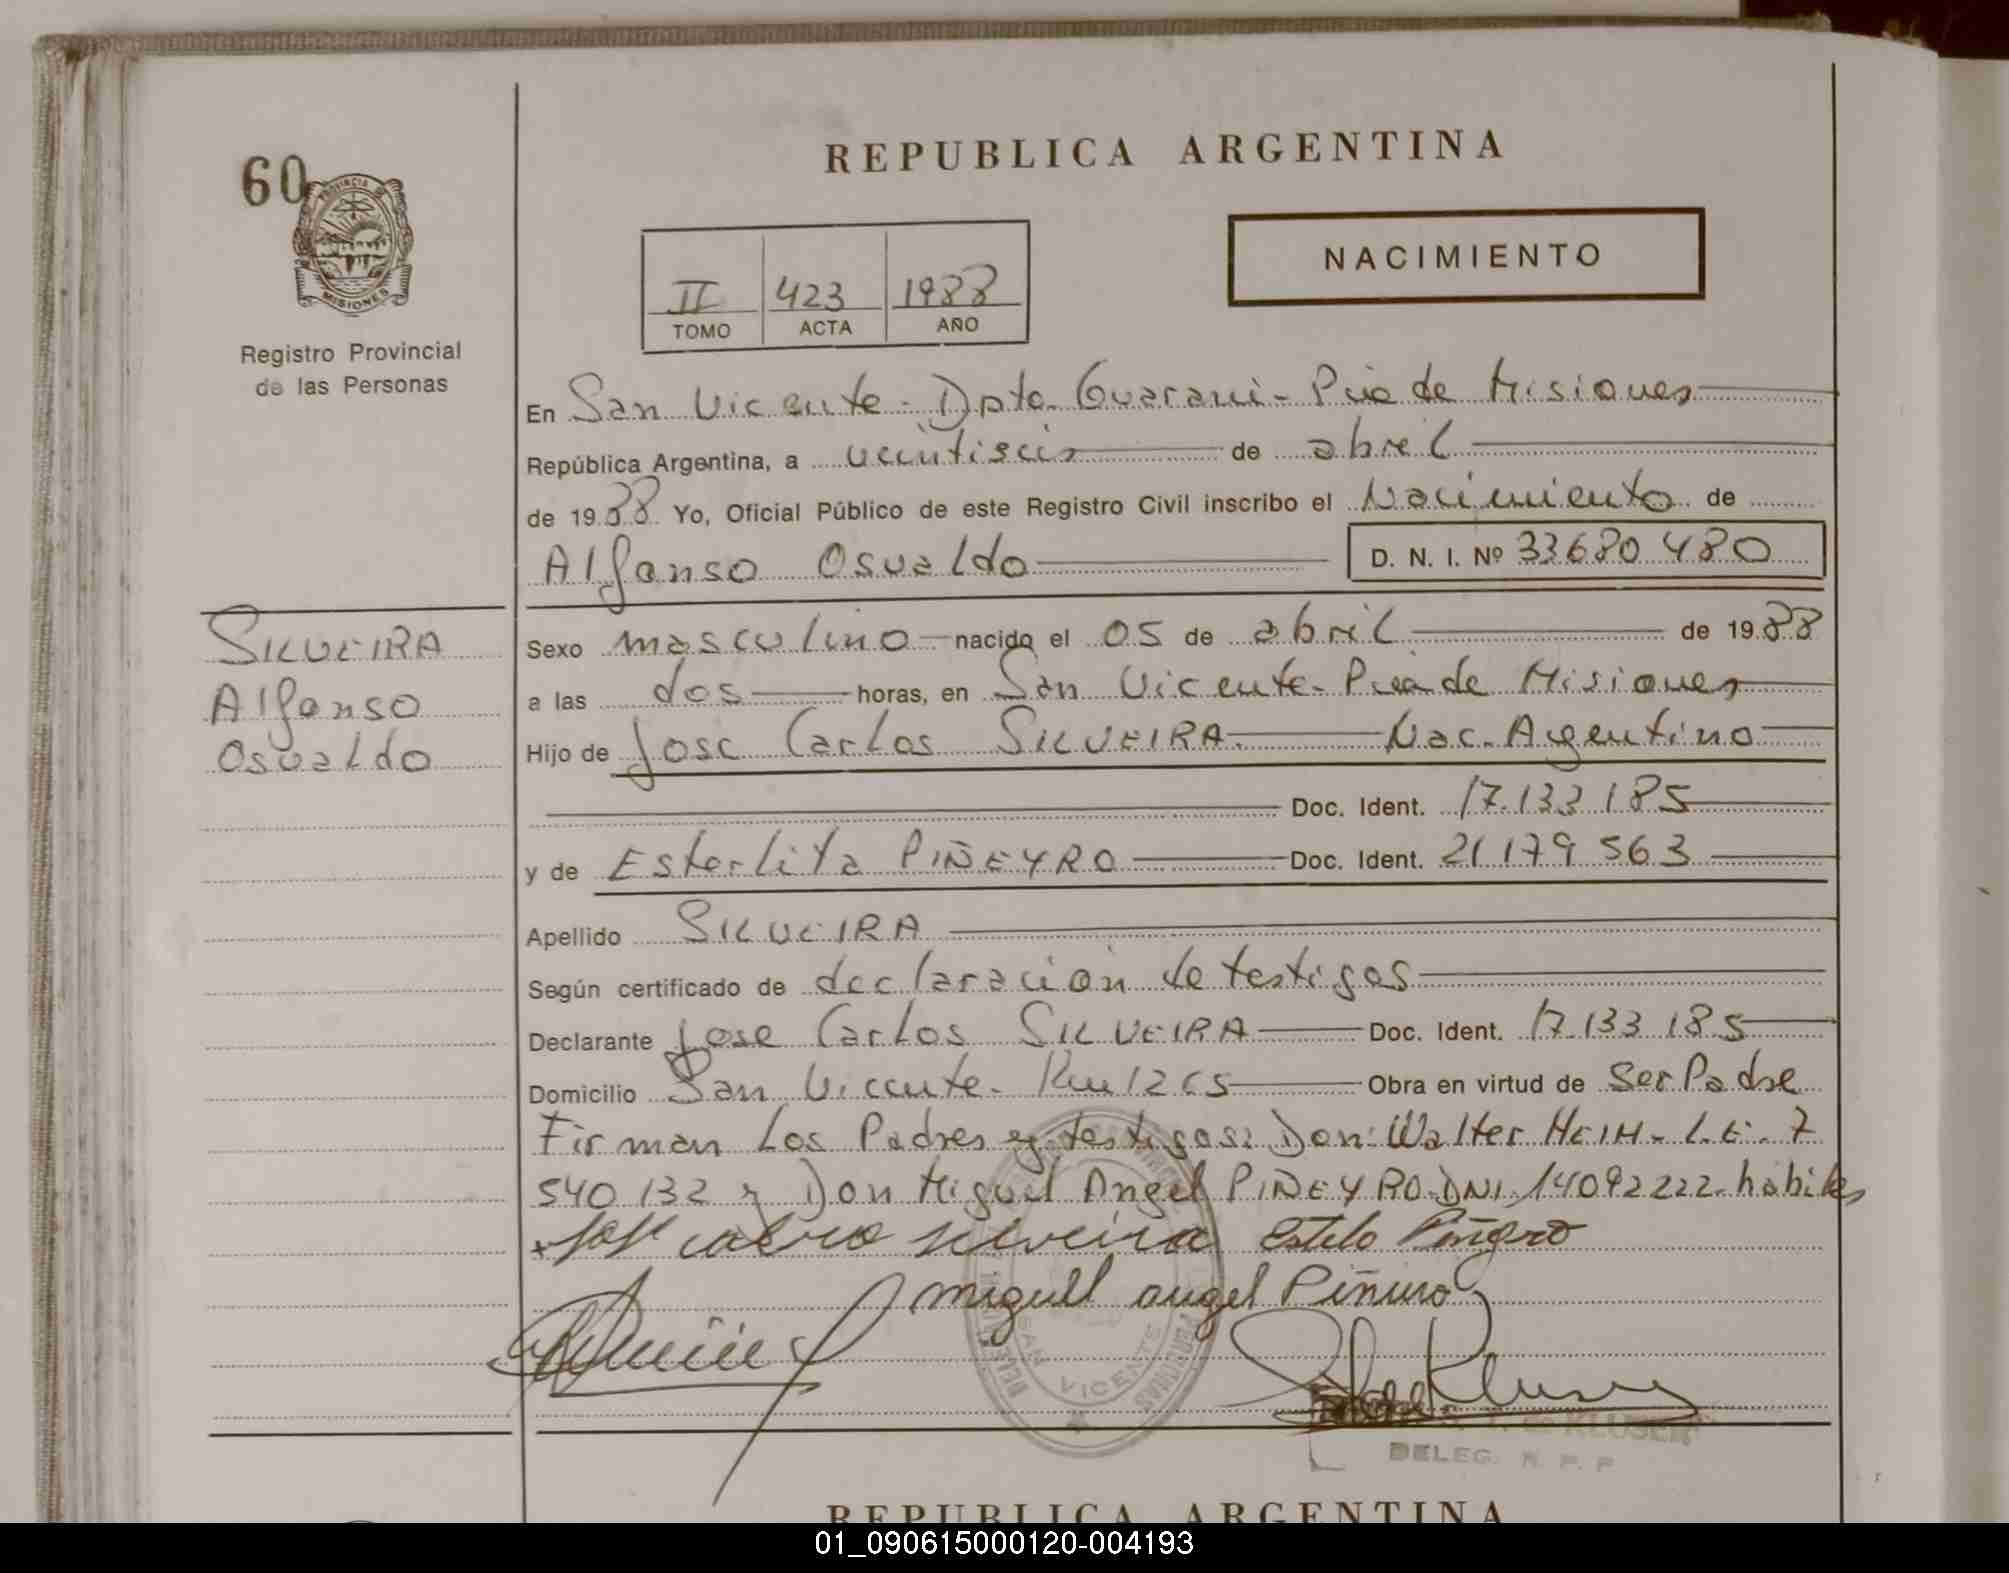 REPUBLICA ARGENTINA
60
PROVINCIA DE
MISIONES
Registro Provincial
de las Personas
NACIMIENTO
II 423 1988
TOMO ACTA AÑO
En San Vicente - Dpto. Guarani - Pcia de Misiones
República Argentina, a veintiseis de abril
de 1988 Yo, Oficial Público de este Registro Civil inscribo el Nacimiento de
Alfonso Osvaldo D. N. I. Nº 33680480
SILVEIRA
Alfonso
Osvaldo
Sexo masculino nacido el 05 de abril de 1988
a las dos horas, en San Vicente - Pcia de Misiones
Hijo de Jose Carlos SILVEIRA. Nac. Argentino
Doc. Ident. 17.133 185
y de Esterlita PIÑEYRO Doc. Ident. 21 179 563
Apellido SILVEIRA
Según certificado de declaración de testigos
Declarante Jose Carlos SILVEIRA Doc. Ident. 17.133 185
Domicilio San Vicente - Km 1265 Obra en virtud de Ser Padre
Firman Los Padres y testigos: Don Walter HEIH - L.E. 7
540 132 y Don Miguel Angel PIÑEYRO DNI 14092222 - habiles
silveira Estela Piñeyro
miguel angel Piñeiro
SAN VICENTE
de KLUSEN
DELEG. R. P. P
REPUBLICA ARGENTINA
01_090615000120-004193